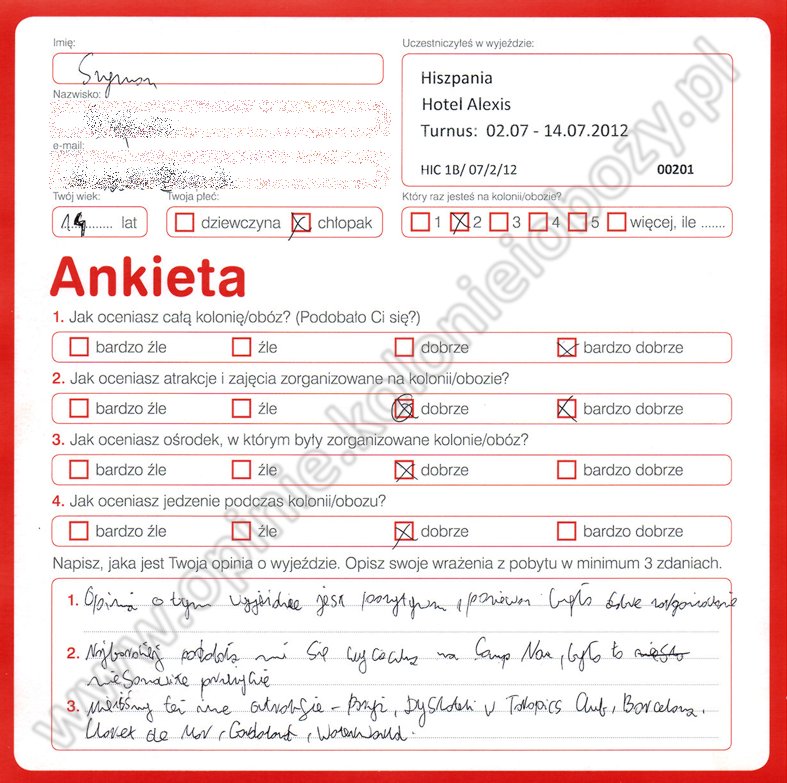 Imię:
Uczestniczyłeś w wyjeździe:
Szymon
Hiszpania
Hotel Alexis
Turnus: 02.07 - 14.07.2012
HIC 1B/ 07/2/12 00201
Nazwisko:
e-mail:
Twój wiek:
Twoja płeć:
Który raz jesteś na kolonii/obozie?
14 lat
dziewczyna chłopak
1 2 3 4 5 więcej, ile .......
Ankieta
1. Jak oceniasz całą kolonię/obóz? (Podobało Ci się?)
bardzo źle źle dobrze bardzo dobrze
2. Jak oceniasz atrakcje i zajęcia zorganizowane na kolonii/obozie?
bardzo źle źle dobrze bardzo dobrze
3. Jak oceniasz ośrodek, w którym były zorganizowane kolonie/obóz?
bardzo źle źle dobrze bardzo dobrze
4. Jak oceniasz jedzenie podczas kolonii/obozu?
bardzo źle źle dobrze bardzo dobrze
Napisz, jaka jest Twoja opinia o wyjeździe. Opisz swoje wrażenia z pobytu w minimum 3 zdaniach.
1. Opinia o tym wyjeździe jest pozytywna, ponieważ było
2. Najbardziej podobała mi się wycieczka na Camp Nou, było to
niesamowite przeżycie
3. Mieliśmy też inne atrakcje - Dyskoteki w Tropics Club, Barcelona,
Lloret de Mar, Waterworld.
www.opinie.kolonieiobozy.pl